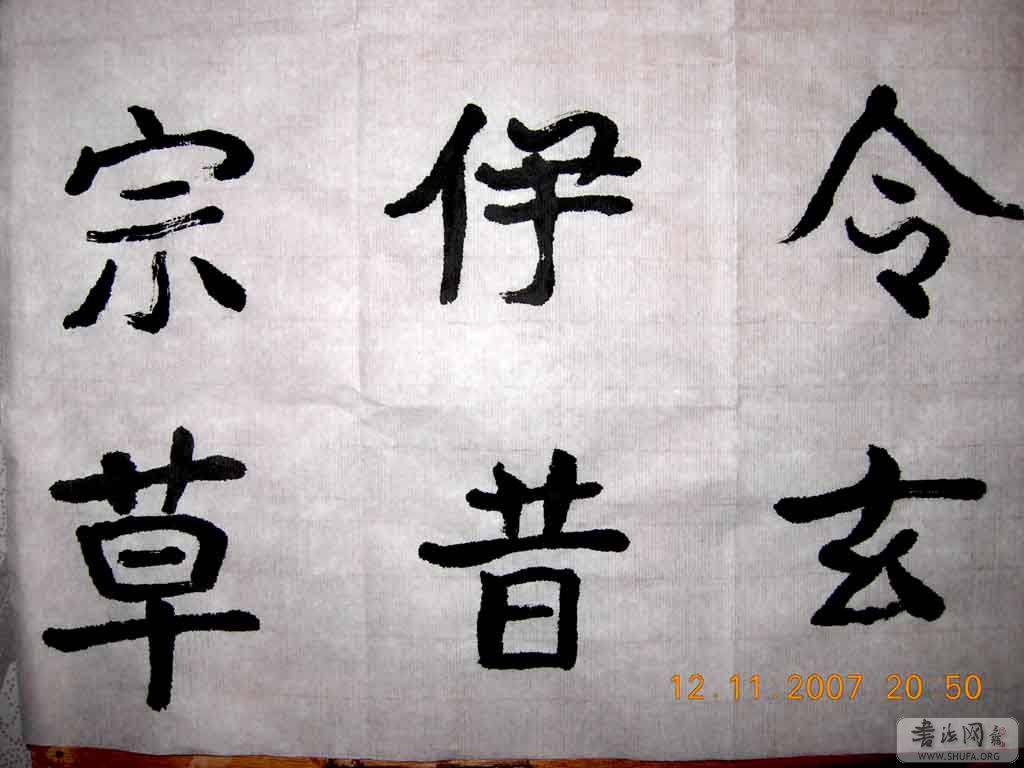 令玄
伊昔
宗草
12.11.2007 20 50
书法网
WWW.SHUFA.ORG